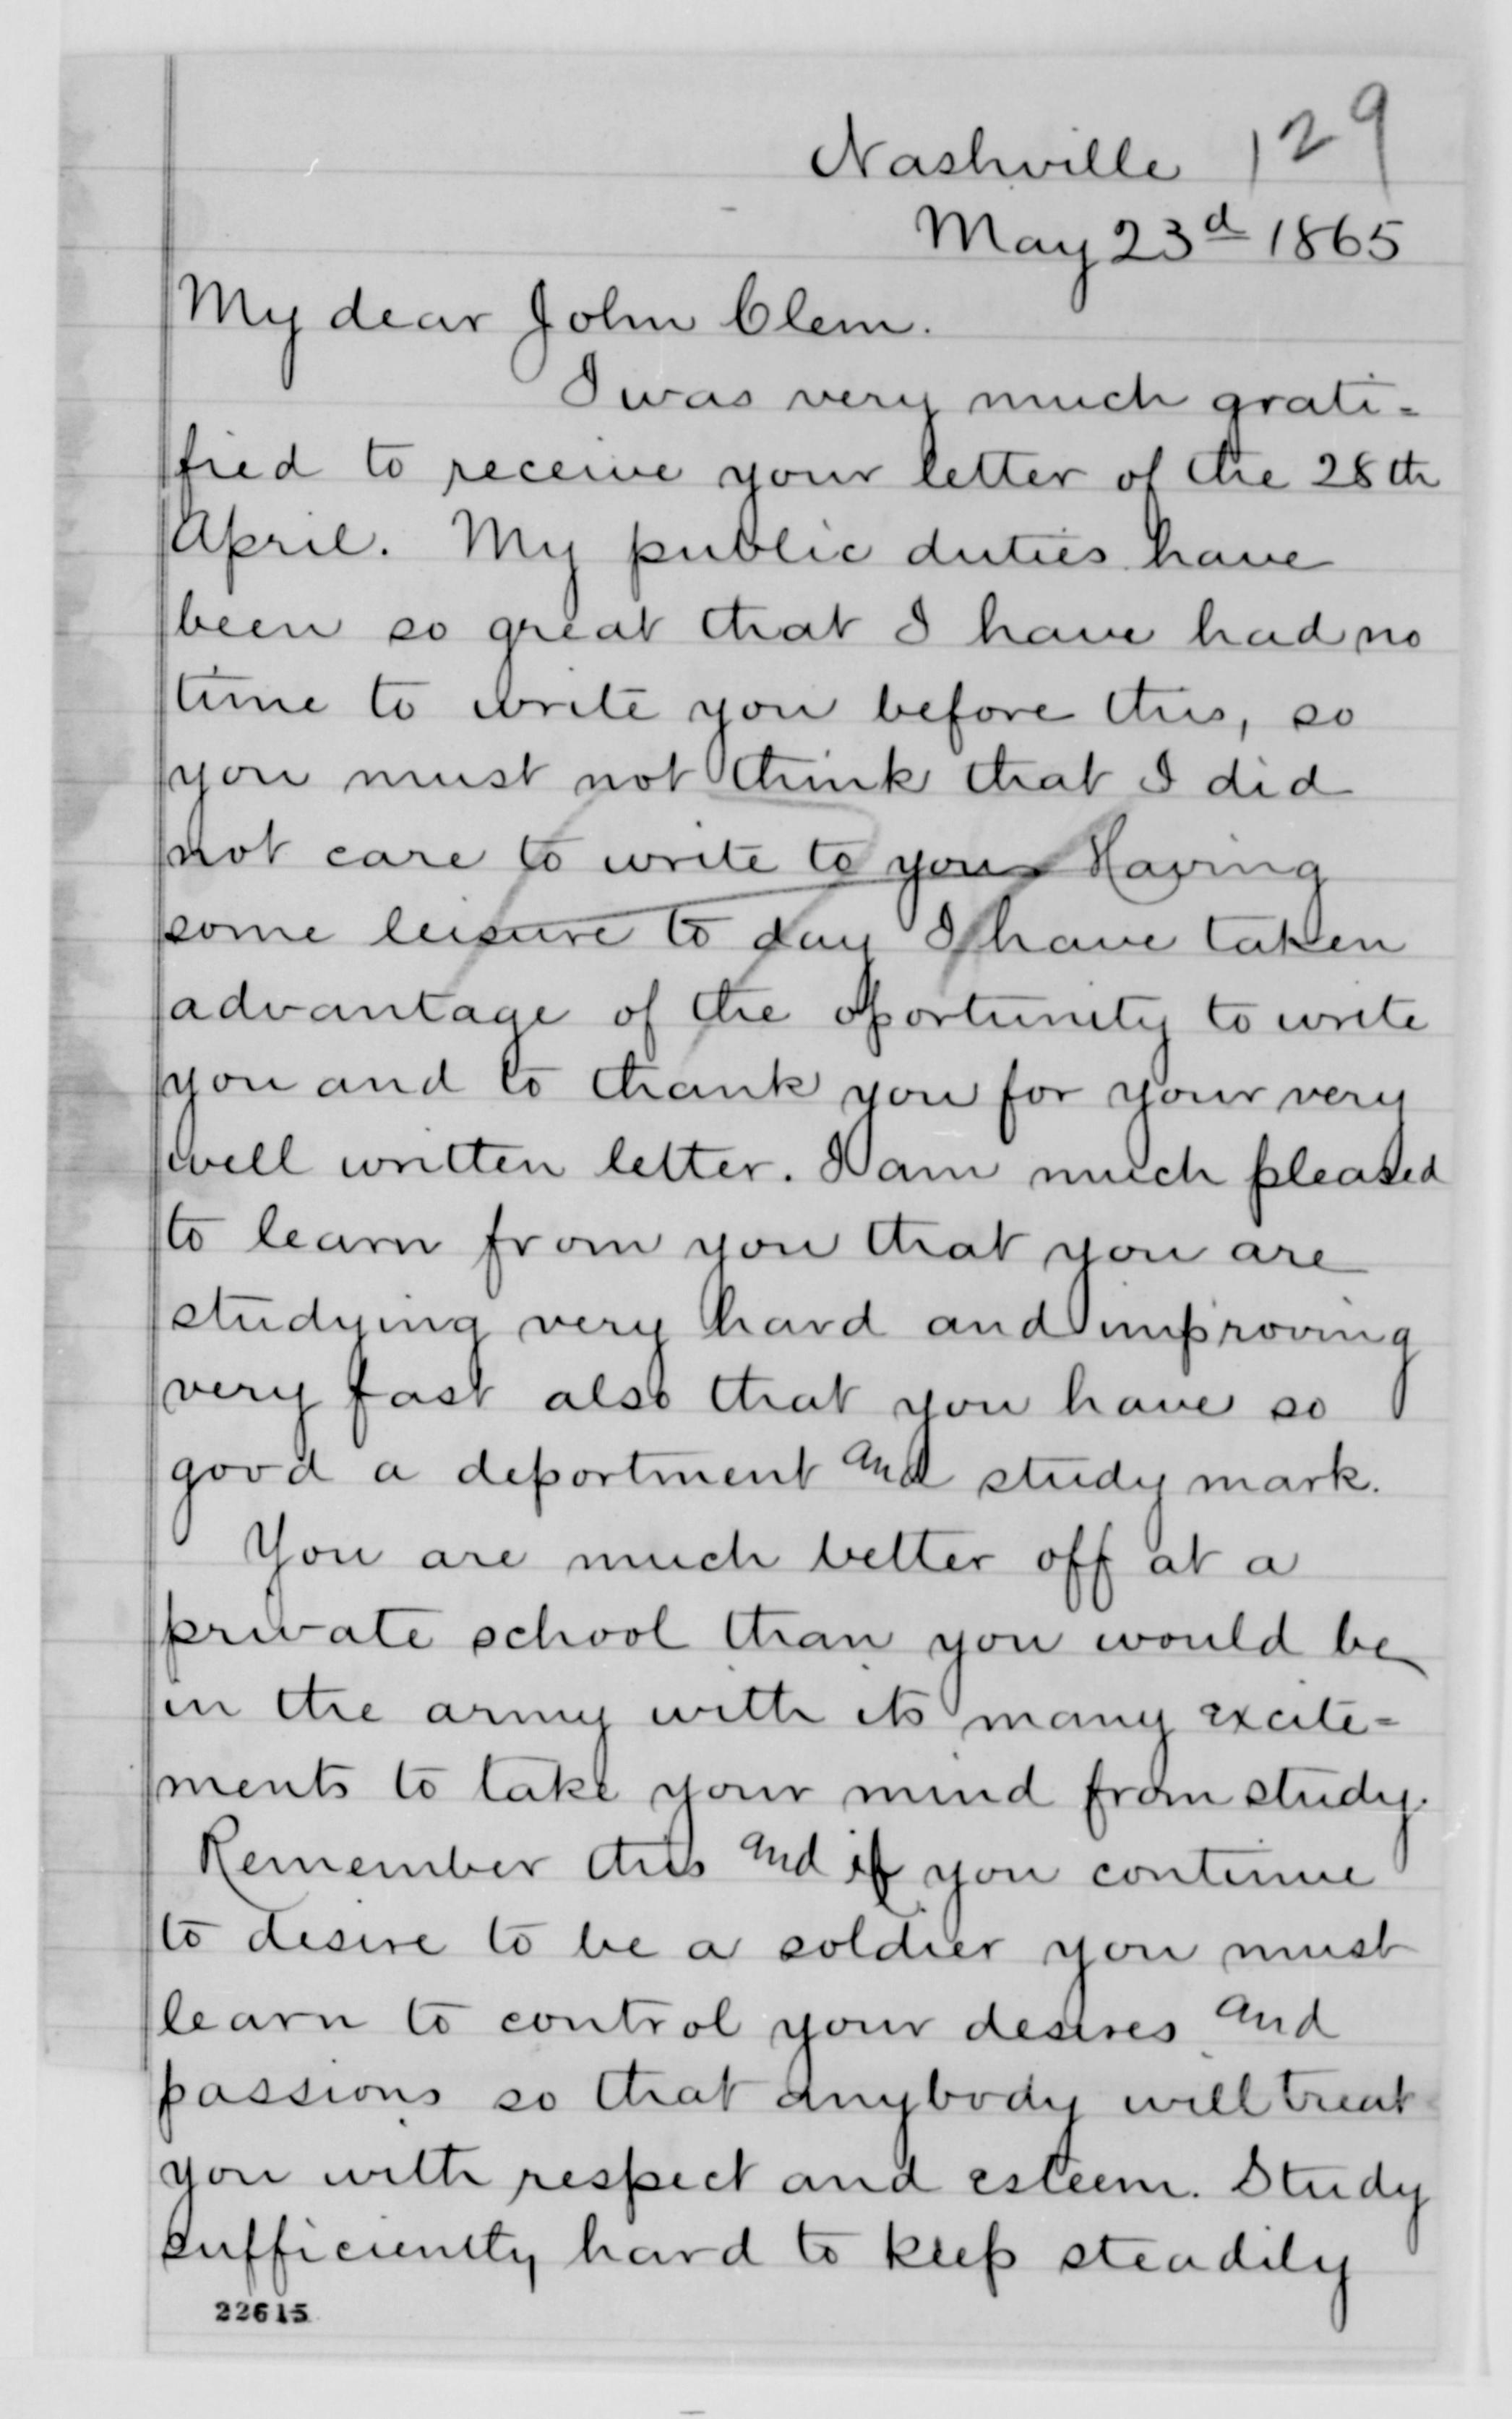 129
Nashville
May 23d 1865
My dear John Clem.
I was very much grati-
fied to receive your letter of the 28th
April. My public duties have
been so great that I have had no
time to write you before this, so
you must not think that I did
not care to write to you Having
some leisure to day I have taken
advantage of the oportunity to write
you and to thank you for your very
well written letter. I am much pleased
to learn from you that you are
studying very hard and improving
very fast also that you have so
good a deportment and study mark.
You are much better off at a
private school than you would be
in the army with its many excite-
ments to take your mind from study.
Remember this and if you continue
to desire to be a soldier you must
learn to control your desires and
passions so that anybody will treat
you with respect and esteem. Study
sufficiently hard to keep steadily
22615